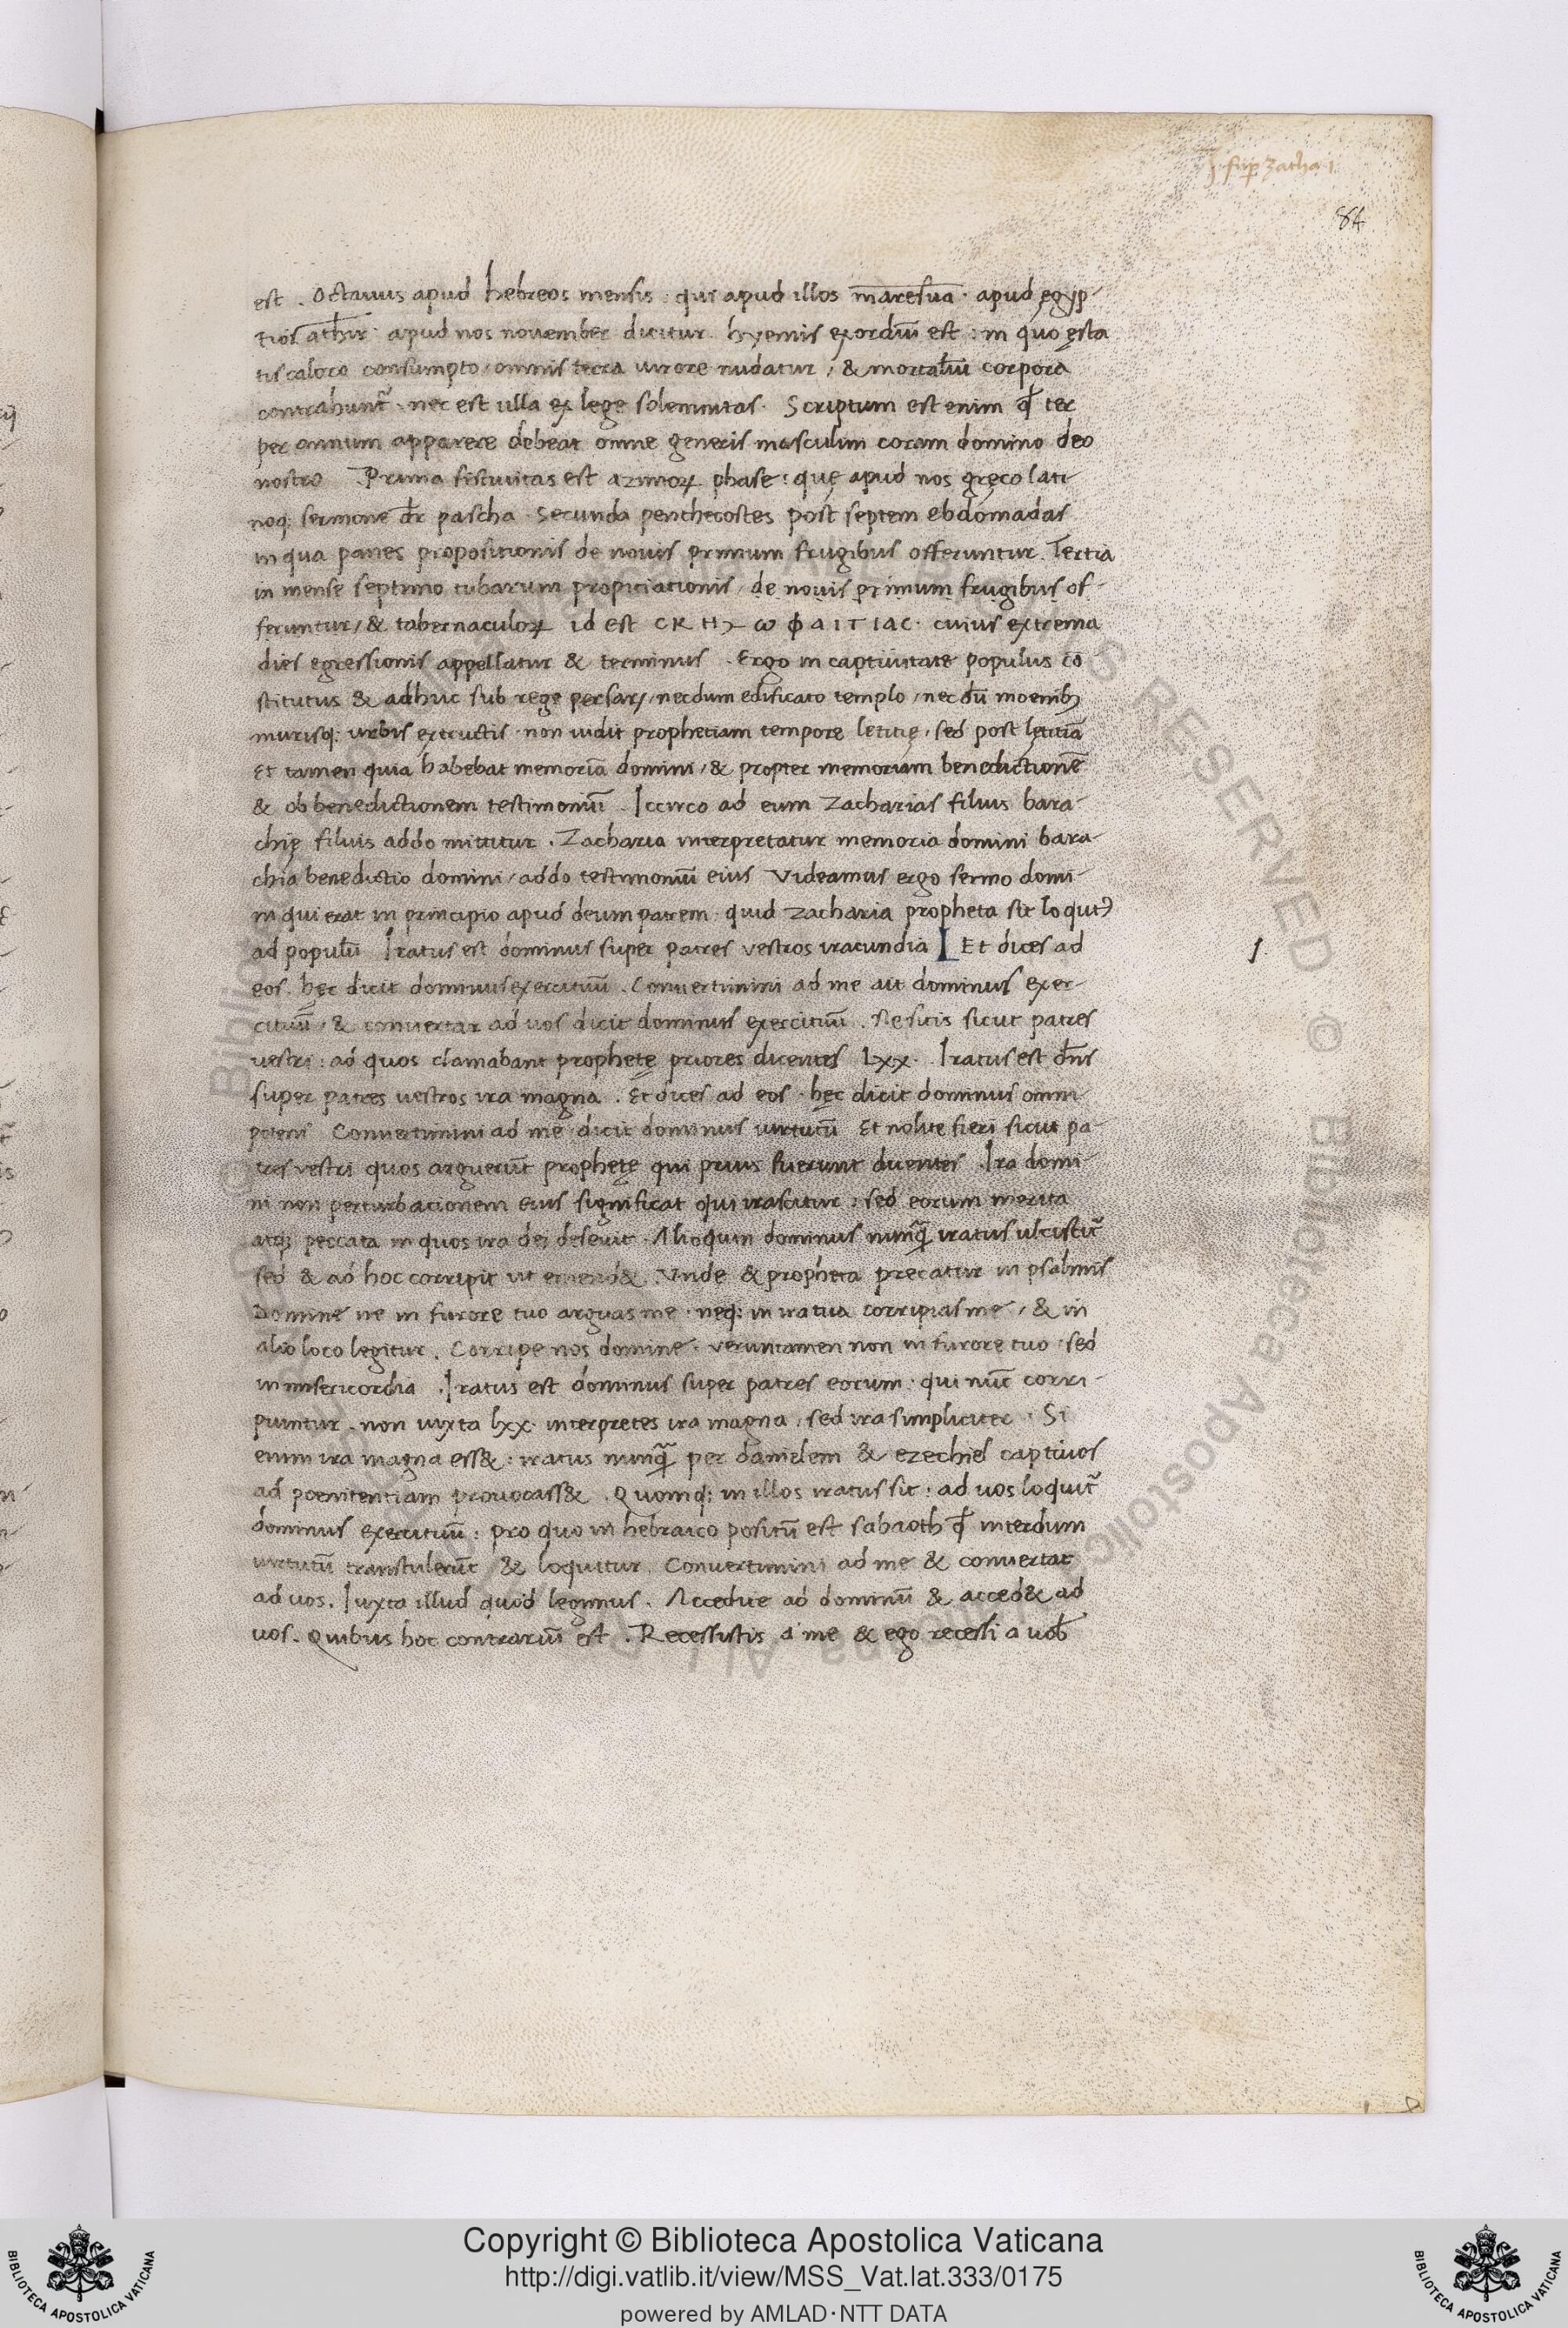 H. sup Zacha. 1.
84
est . Octauus apud hebreos mensis : qui apud illos m̅aresua̅ · apud ęgyp-
tios athir · apud nos nouember dicitur hyemis exordiu̅ est : in quo ęsta
tis calore consumpto / omnis terra uirore nudatur / & mortaliu̅ corpora
contrahunt᷑ · nec est ulla ex lege solemnitas · Scriptum est enim qđ ter
per annum apparere debeat omne generis masculini coram domino deo
nostro Prima festiuitas est azimoꝝ phase : quę apud nos gręco lati
noq; sermone dr̅ pascha · Secunda penthecostes post septem ebdomadas
in qua panes propositionis de nouis primum frugibus offeruntur . Tertia
in mense septimo tubarum propiciationis / de nouis primum frugibus of-
feruntur / & tabernaculoꝝ id est CKH ω ϕ AITIAC · cuius extrema
dies egressionis appellatur & terminus . Ergo in captiuitate populus co̅
stitutus & adhuc sub rege persaꝝ / necdum edificato templo / nec du̅ moenibꝫ
murisq; urbis extructis · non uidit prophetiam tempore letitię / sed post lętitia̅
Et tamen quia habebat memoria̅ domini / & propter memoriam benedictione̅
& ob benedictionem testimoniu̅ . Iccirco ad eum Zacharias filius bara-
chię filius addo mittitur . Zacharia interpretatur memoria domini bara-
chia benedictio domini / addo testimoniu̅ eius Videamus ergo sermo domi-
ni qui erat in principio apud deum patrem · quid zacharia propheta sit loqut᷑
ad populu̅ Iratus est dominus super patres vestros iracundia I Et dices ad
1.
eos . hęc dicit dominus exercituu̅ . Conuertimini ad me ait dominus exer-
cituu̅ / & conuertar ad uos dicit dominus exercituu̅ . Ne sitis sicut patres
vestri : ad quos clamabant prophetę priores dicentes Lxx . Iratus est dn̅s
super patres uestros ira magna . Et dices ad eos · hęc dicit dominus omni
potens Conuertimini ad me dicit dominus uirtutu̅ Et nolite fieri sicut pa-
tres vestri quos arguerunt prophetę qui prius fuerunt dicentes . Ira domi-
ni non perturbationem eius significat qui irascitur : sed eorum merita
atqꝫ peccata in quos ira dei deseuit . Alioquin dominus nunq̅ iratus ulciscit᷑
sed & ad hoc corripit ut emend& . Vnde & propheta precatur in psalmis
Domine ne in furore tuo arguas me · neq; in ira tua corripias me / & in
alio loco legitur . Corripe nos domine · veruntamen non in furore tuo · sed
in misericordia . Iratus est dominus super patres eorum · qui nu̅c corri-
piuntur · non iuxta lxx · interpretes ira magna / sed ira simpliciter . Si
enim ira magna ess& : iratus nunq̅ per danielem & ezechiel captiuos
ad poenitentiam prouocass& . Quomq; in illos iratus sit : ad uos loquit᷑
dominus exercituu̅ : pro quo in hebraico positu̅ est sabaoth qđ interdum
uirtutu̅ transtuleru̅t & loquitur . Conuertimini ad me & conuertar
ad uos . Iuxta illud quod legimus . Accedite ad dominu̅ & acced& ad
uos . Quibus hoc contrariu̅ est . Recessistis a me & ego recessi a uob̅
Copyright © Biblioteca Apostolica Vaticana
http://digi.vatlib.it/view/MSS_Vat.lat.333/0175
powered by AMLAD·NTT DATA
BIBLIOTECA APOSTOLICA VATICANA
BIBLIOTECA APOSTOLICA VATICANA